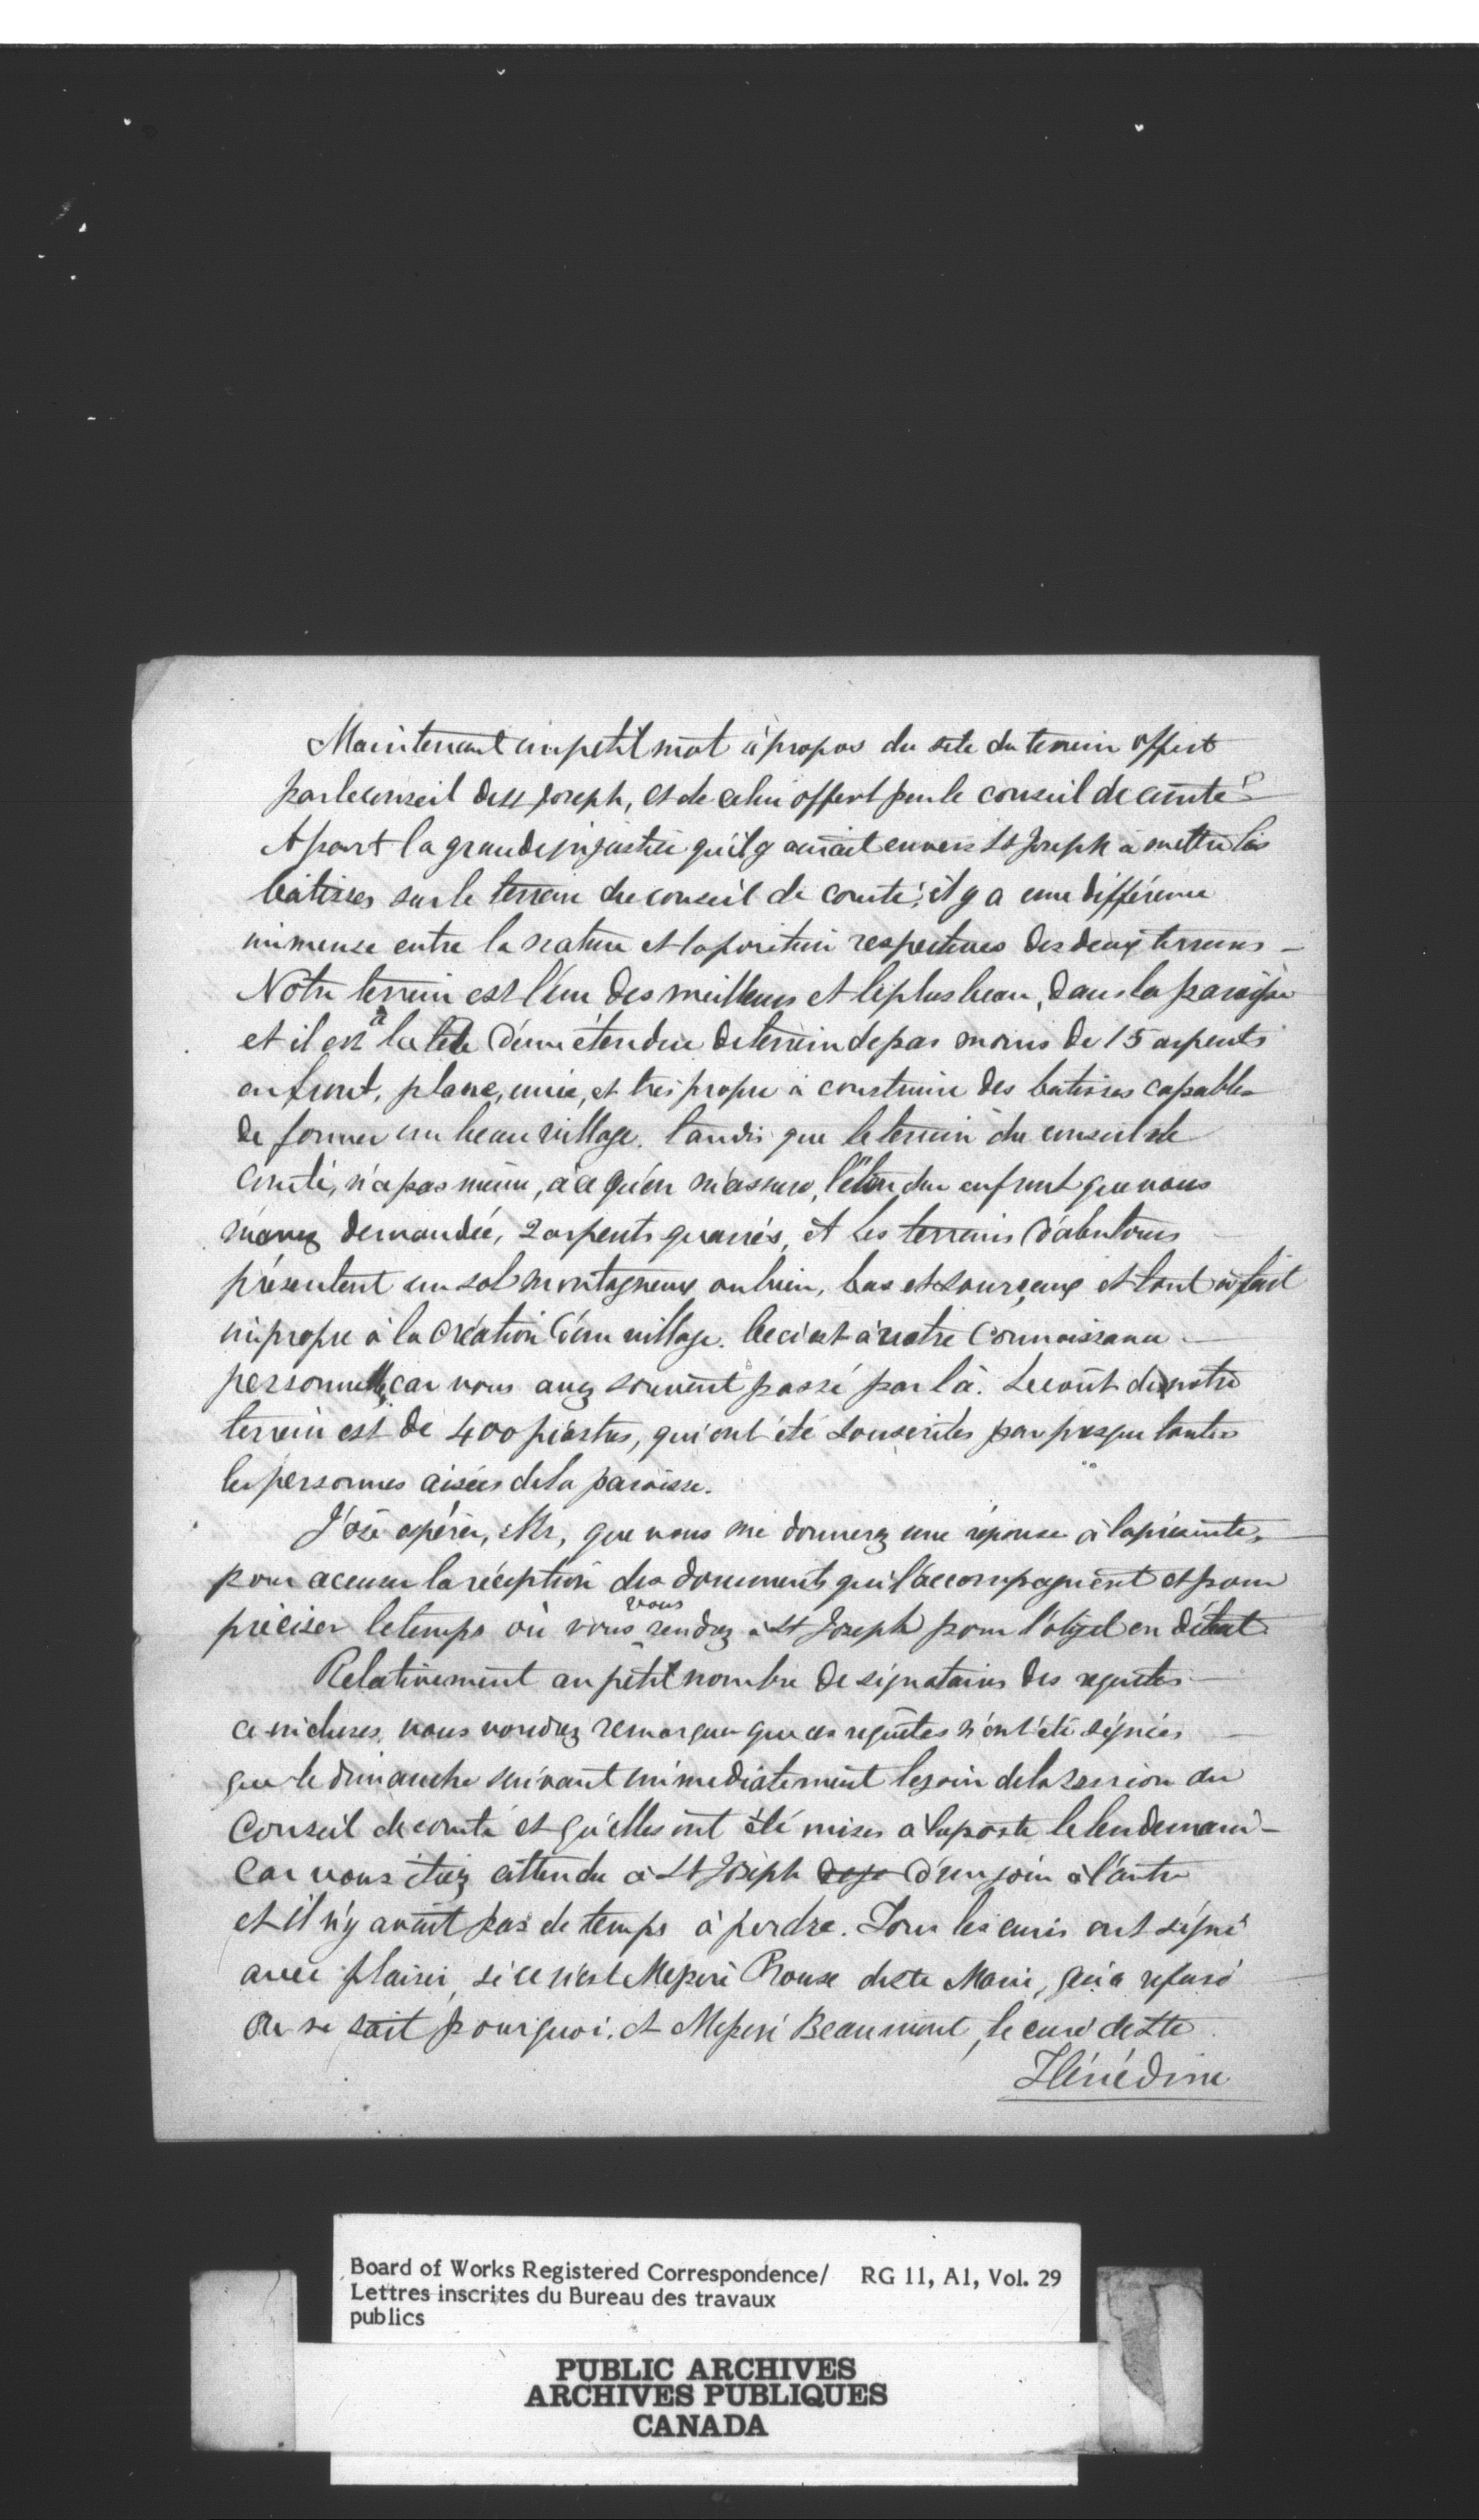 Maintenant un petit mot à propos du site du terrein offert
par le conseil de St Joseph, et de celui offert par le conseil de comté.
A part la grande injustice qu'il y aurait envers St Joseph à mettre les
bâtisses sur le terrein du conseil de comté, il y a une différence
immense entre la nature et la position respectives des deux terreins —
Notre terrein est l'un des meilleurs et le plus beau, dans la paroisse
et il est à la tête d'une étendue de terrein de pas moins de 15 arpents
en front, plane, unie, et très propre à construire des batisses capables
de former un beau village. tandis que le terrein du conseil de
comté, n'a pas même, à ce qu'on m'assure, l'étendue en front que vous
m'avez demandée, 2 arpents quarrés, et les terreins d'alentours
présentent un sol montagneux ou bien, bas et sourçeux et tout à fait
impropre à la création d'un village. Ceci est à votre connaissance
personnelle, car vous avez souvent passé par là. Le coût de notre
terrein est de 400 piastres, qui ont été souscrites par presque toutes
les personnes aisées de la paroisse.
J'ose espérer, Mr, que vous me donnerez une réponse à la présente,
pour accuser la réception des documents qui l'accompagnent et pour
préciser le temps où vous vous rendrez à St Joseph pour l'objet en débat.
Relativement au petit nombre de signataires des requêtes
ci-incluses, vous voudrez remarquer que ces requêtes n'ont été signées
que le dimanche suivant immediatement le jour de la session du
Conseil de comté et qu'elles ont été mises à la poste le lendemain —
Car vous étiez attendu à St Joseph d'un jour à l'autre
et il n'y avait pas de temps à perdre. Tous les curés ont signé
avec plaisir, si ce n'est Messire Prouse de Ste Marie, qui a refusé
on ne sait pourquoi. et Messire Beaumont, le curé de Ste
Hénédine
Board of Works Registered Correspondence/ RG 11, A1, Vol. 29
Lettres inscrites du Bureau des travaux
publics
PUBLIC ARCHIVES
ARCHIVES PUBLIQUES
CANADA